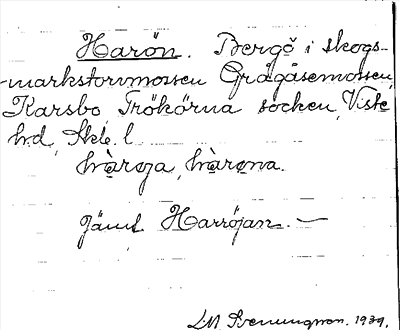 Harön. Bergö i skogs-
markstorvmossen Grågåsemossen,
Karsbo, Trökörna socken, Viste
hd, Skb. l.
hàrøja, hàrøna.
Jämf. Harröjan. —
L.M. Svenungsson. 1939.